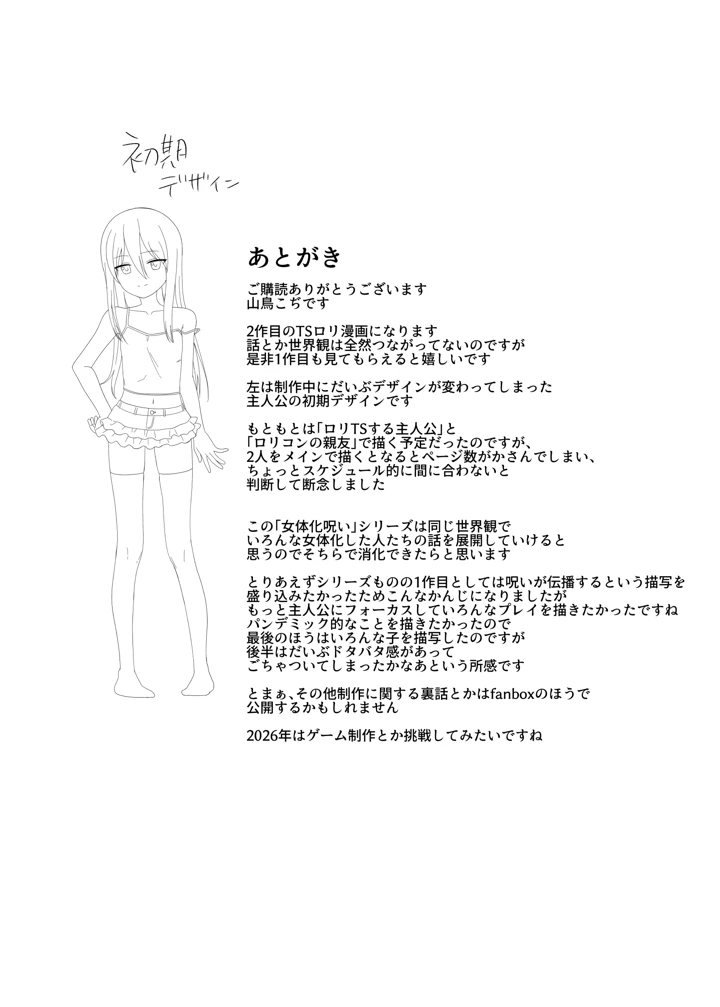 初期
デザイン
あとがき
ご購読ありがとうございます
山鳥こぢです
2作目のTSロリ漫画になります
話とか世界観は全然つながってないのですが
是非1作目も見てもらえると嬉しいです
左は制作中にだいぶデザインが変わってしまった
主人公の初期デザインです
もともとは｢ロリTSする主人公｣と
｢ロリコンの親友｣で描く予定だったのですが、
2人をメインで描くとなるとページ数がかさんでしまい、
ちょっとスケジュール的に間に合わないと
判断して断念しました
この｢女体化呪い｣シリーズは同じ世界観で
いろんな女体化した人たちの話を展開していけると
思うのでそちらで消化できたらと思います
とりあえずシリーズものの1作目としては呪いが伝播するという描写を
盛り込みたかったためこんなかんじになりましたが
もっと主人公にフォーカスしていろんなプレイを描きたかったですね
パンデミック的なことを描きたかったので
最後のほうはいろんな子を描写したのですが
後半はだいぶドタバタ感があって
ごちゃついてしまったかなあという所感です
とまぁ､その他制作に関する裏話とかはfanboxのほうで
公開するかもしれません
2026年はゲーム制作とか挑戦してみたいですね